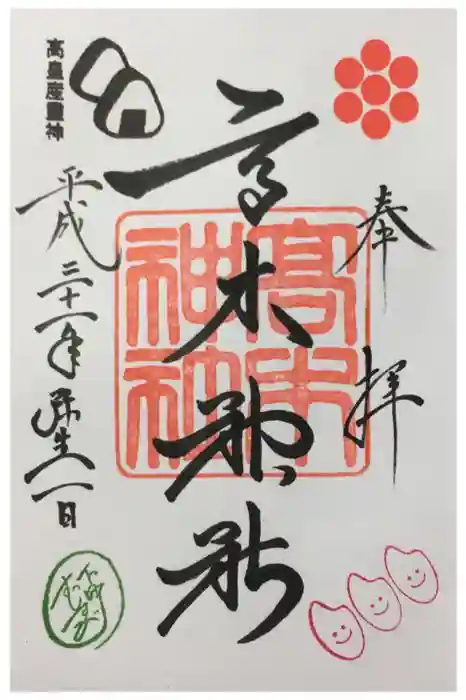 奉拝
高木神社
高木神社
平成三十一年弥生一日
高皇産靈神